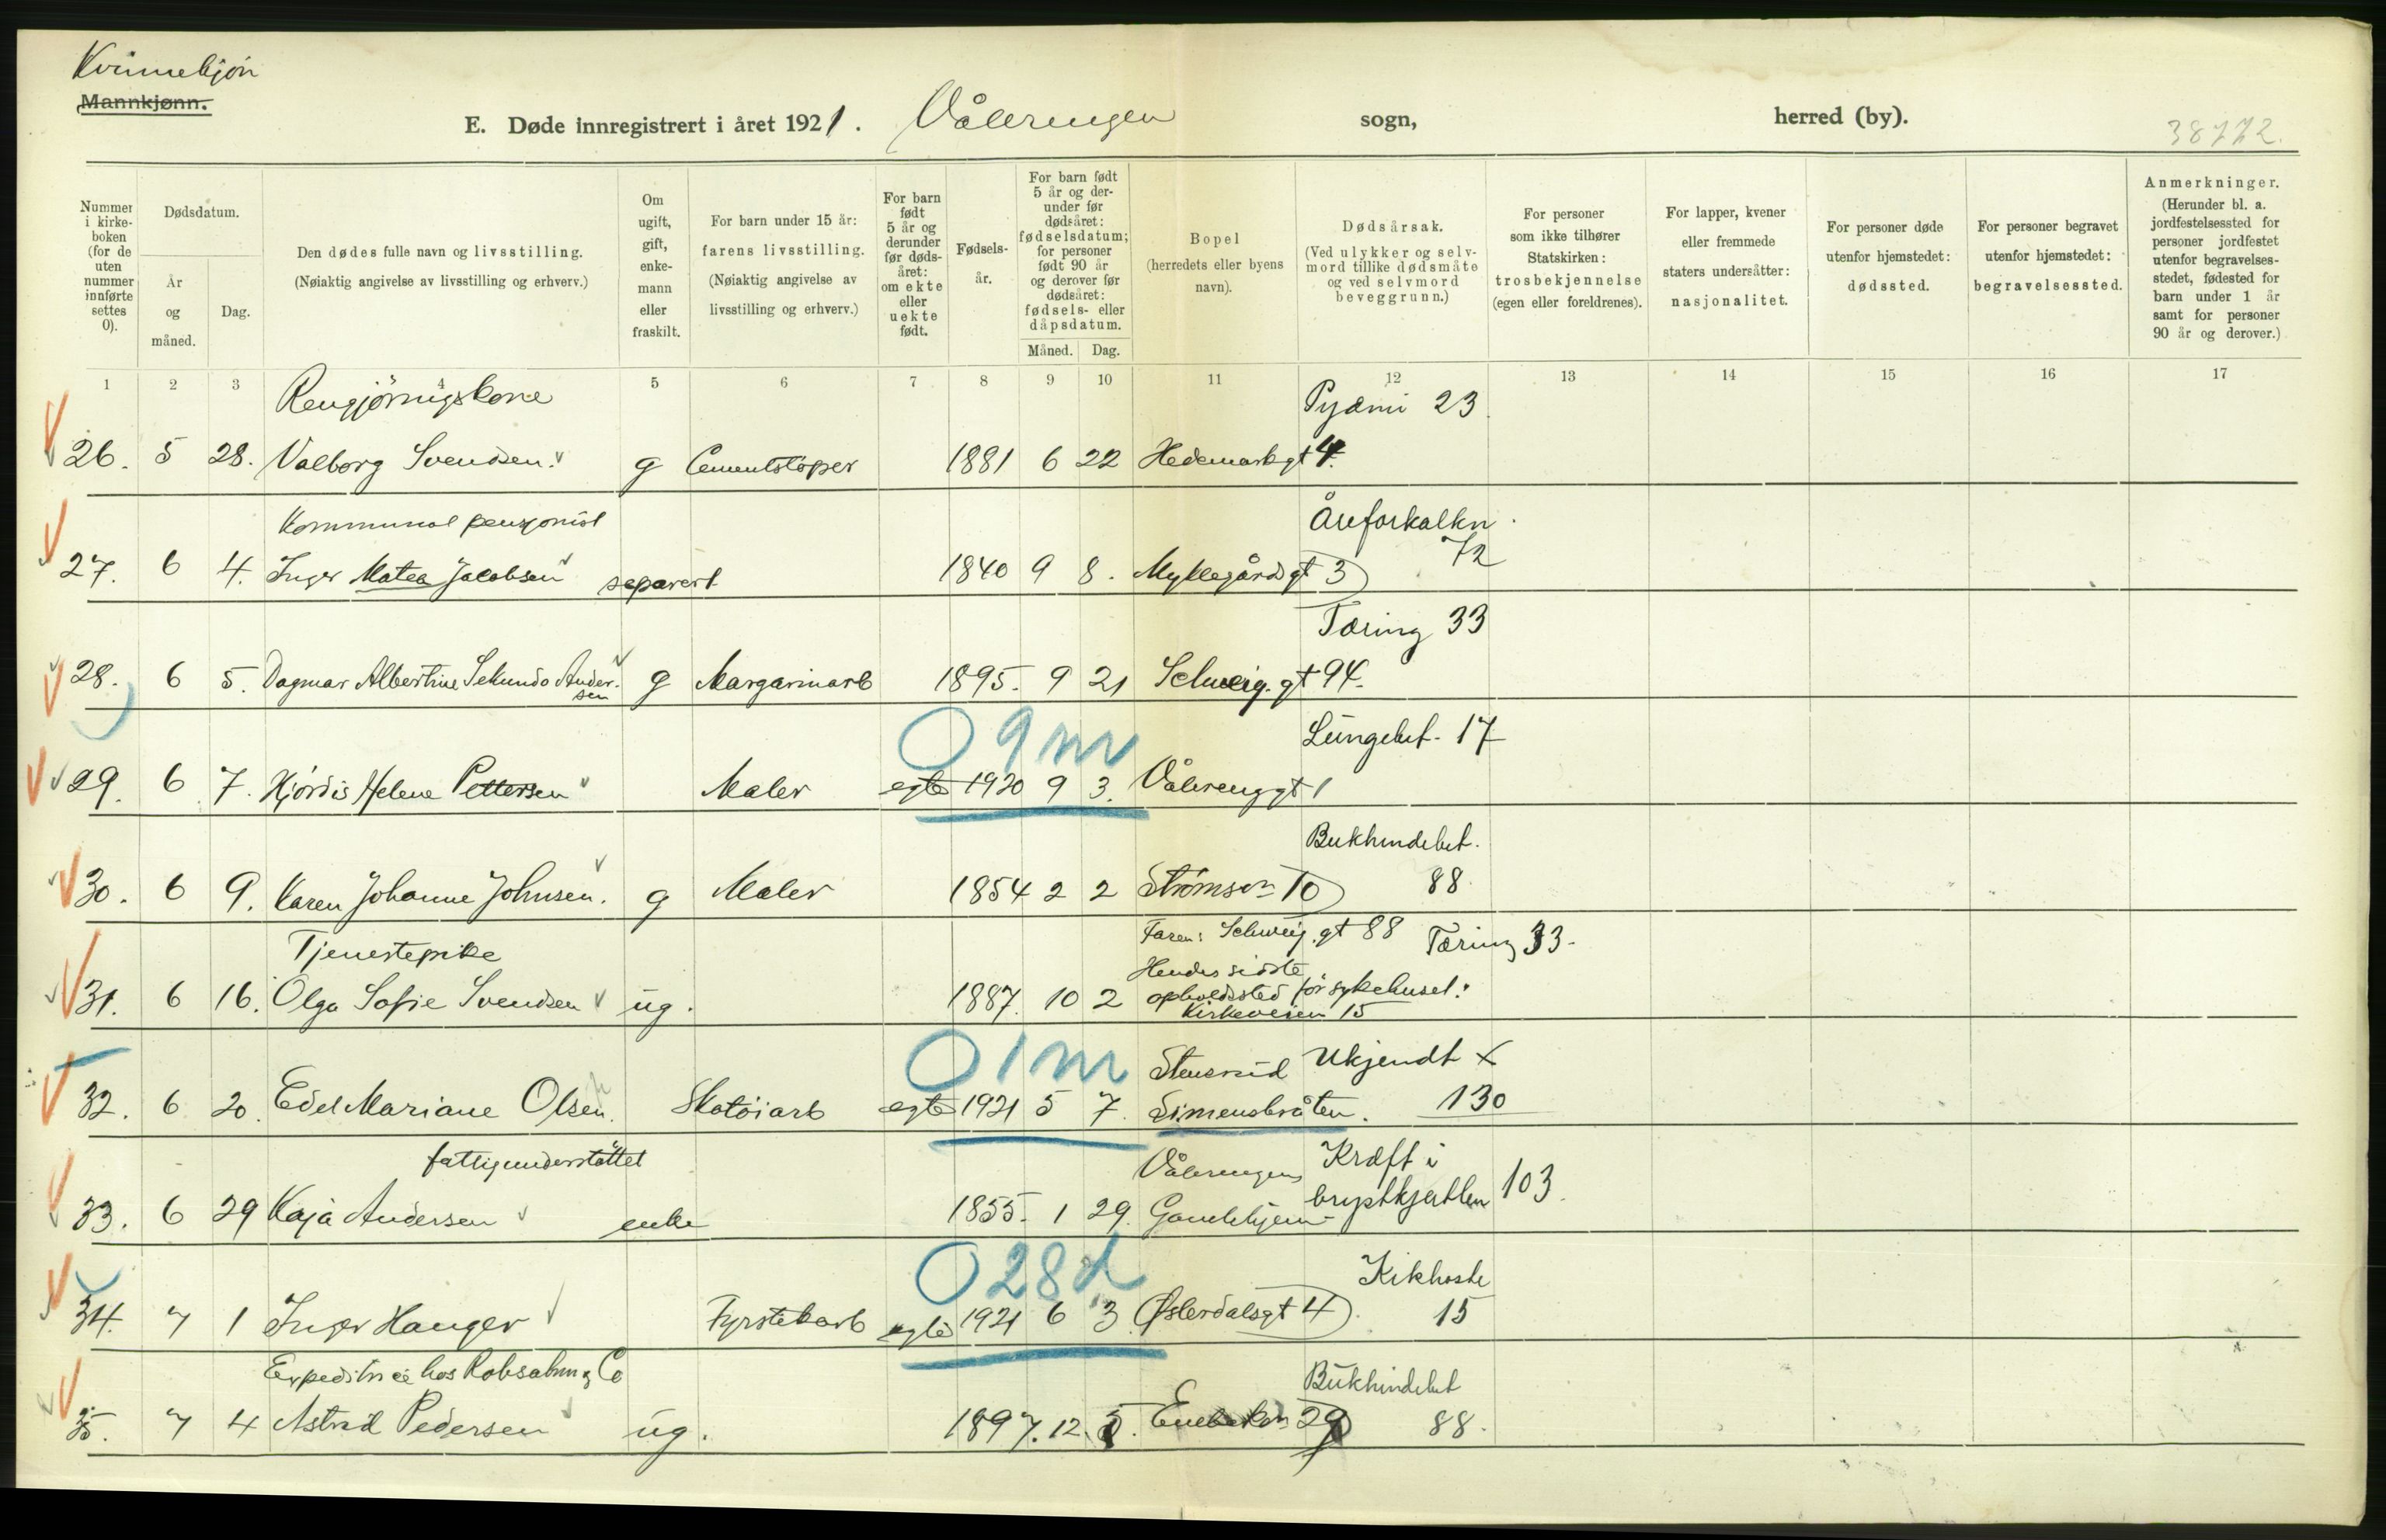 Kvinnekjøn
Mannkjønn.
E. Døde innregistrert i året 1921. Vålerengen sogn, herred (by).
38772.
Nummer i kirke-boken (for de uten nummer innførte settes 0).
Dødsdatum.
År og måned.
Dag.
Den dødes fulle navn og livsstilling.
(Nøiaktig angivelse av livsstilling og erhverv.)
Om ugift, gift, enke-mann eller fraskilt.
For barn under 15 år: farens livsstilling. (Nøiaktig angivelse av livsstilling og erhverv.)
For barn født 5 år og derunder før døds-året: om ekte eller uekte født.
Fødsels-år.
For barn født 5 år og der-under før dødsåret: fødselsdatum; for personer født 90 år og derover før dødsåret: fødsels- eller dåpsdatum.
Måned. Dag.
Bopel (herredets eller byens navn).
Dødsårsak. (Ved ulykker og selv-mord tillike dødsmåte og ved selvmord beveggrunn.)
For personer som ikke tilhører Statskirken: trosbekjennelse (egen eller foreldrenes).
For lapper, kvener eller fremmede staters undersåtter: nasjonalitet.
For personer døde utenfor hjemstedet: dødssted.
For personer begravet utenfor hjemstedet: begravelsessted.
Anmerkninger. (Herunder bl. a. jordfestelsessted for personer jordfestet utenfor begravelses-stedet, fødested for barn under 1 år samt for personer 90 år og derover.)
1 2 3 4 5 6 7 8 9 10 11 12 13 14 15 16 17
Rengjøringskone Pyæmi 23
26. 5 28. Valborg Svendsen. g Cementstöper 1881 6 22 Hedemarkgt 4.
Kommunal pensjonist Åreforkalkn.
72
27. 6 4. Inger Matea Jacobsen separert 1840 9 8. Myklegårdsgt 3
Tæring 33
28. 6 5. Dagmar Albertine Sekunda Ander-sen g Margarinarb 1895. 9 21 Schweig. gt 94.
0 9 m Lungebet. 17
29. 6 7. Hjördis Helene Pettersen Maler egte 1920 9 3. Vålerenggt 1
Bukhindebet.
30. 6 9. Karen Johanne Johnsen. g Maler 1854 2 2 Strömsvn 10 88.
Faren: Schweig. gt 88 Tæring 33.
Tjenestepike Hendes sidste
31. 6 16. Olga Sofie Svendsen ug. 1887. 10 2 opholdssted för sykehuset:
Kirkeveien 15
0 1 m Stensrud Ukjendt X
32. 6 20. Edel Mariane Olsen. Skotöiarb egte 1921 5 7. Simensbråten. 130
fattigunderstöttet Vålerengens Kræft i
33. 6 29 Kaja Andersen enke 1855. 1 29. Gamlehjem brystkjertlen 103.
0 28 d Kikhoste
34. 7 1 Inger Hauger Fyrstikarb egte 1921 6 3 Østerdalsgt 4 15
Expeditrice hos Robsahm & Co Bukhindebet
35. 7 4 Astrid Pedersen ug. 1897. 12. 5. Enebakvn 29 88.